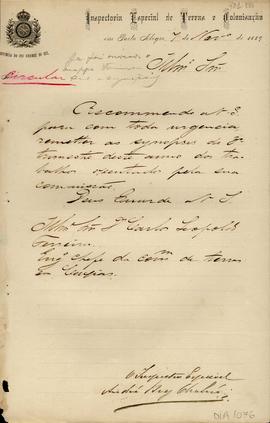 Inspectoria Especial de Terras e Colonisação
em Porto Alegre, 7 de Novº de 188
PROVINCIA DO RIO GRANDE DO SUL
Circular
Illmº Snr
Recommendo a V. S.
para com toda urgencia
remetter as synopses do 3º
trimestre deste anno do tra-
balho executado pela sua
commissão.
Deus Guarde a V. S.
Illmº Snr Dr Carlos Leopoldo
Ferreira
Engº Chefe da Comm de terras
em Caxias
O Inspector Especial
DIA 1076